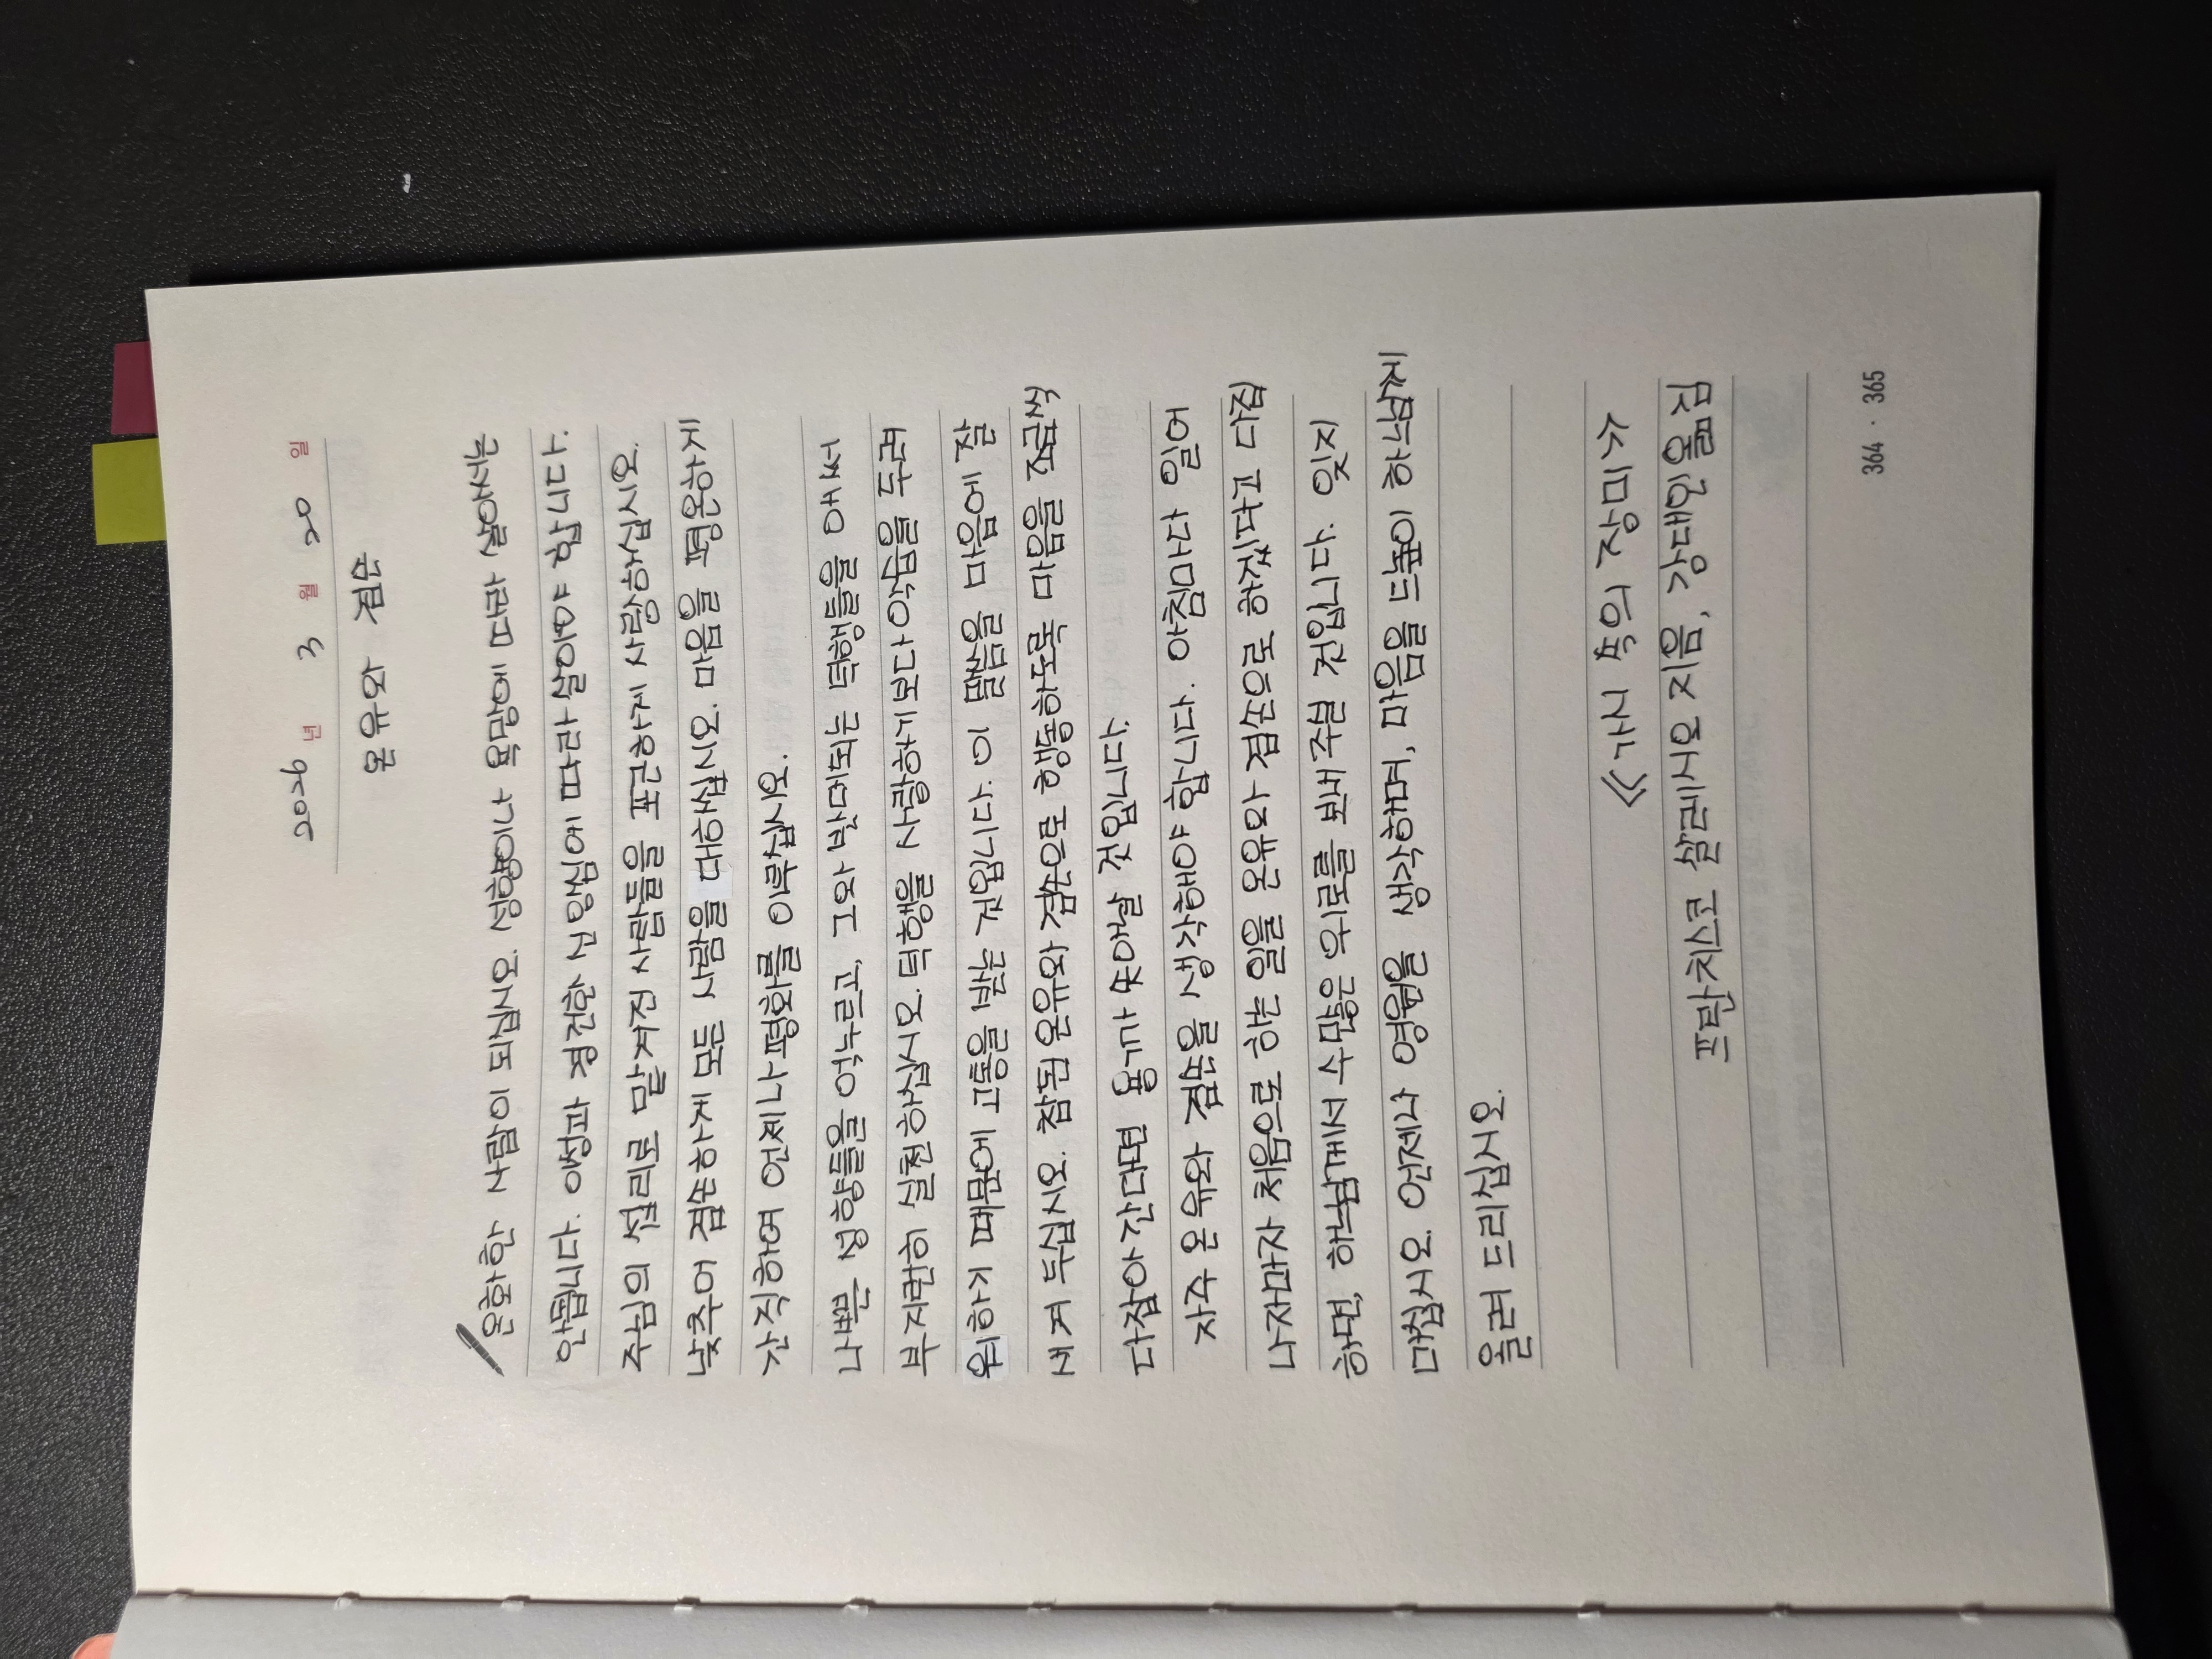 2026년 3월 20일
온유와 겸손
온화한 사람이 되십시오. 성향이나 욕망에 따라 살아서는
안됩니다. 이성과 경건한 신앙심에 따라 살아야 합니다.
주님의 섭리로 맡겨진 사람들을 포근하게 사랑하십시오.
낮추어 겸손하게 모든 사람을 대하십시오. 마음을 평온하게
간직하여 언제나 평화를 이루십시오.
나쁜 성향들을 억누르고, 그와 반대되는 덕행들을 애써
부지런히 실천하십시오. 덕행을 사랑하기보다 악습을 두려
워하기 때문에 고통을 받는 것입니다. 이 말씀을 마음에 잘
새겨 두십시오. 참된 온유와 겸손으로 행동하도록 마음을 조금씩
다잡아 간다면 용기가 솟아날 것입니다.
자주 온유와 겸손을 생각해야 합니다. 아침마다 일어
나자마자 처음으로 하는 일을 온유와 겸손으로 하겠다고 다짐
하면, 하느님께서 수많은 위로를 보내 주실 것입니다. 잊지
마십시오. 언제나 영원을 생각하며, 마음을 드높이 하느님께
올려 드리십시오.
《가시 속의 장미》
프란치스코 살레시오 지음, 강대인 옮김
364 · 365